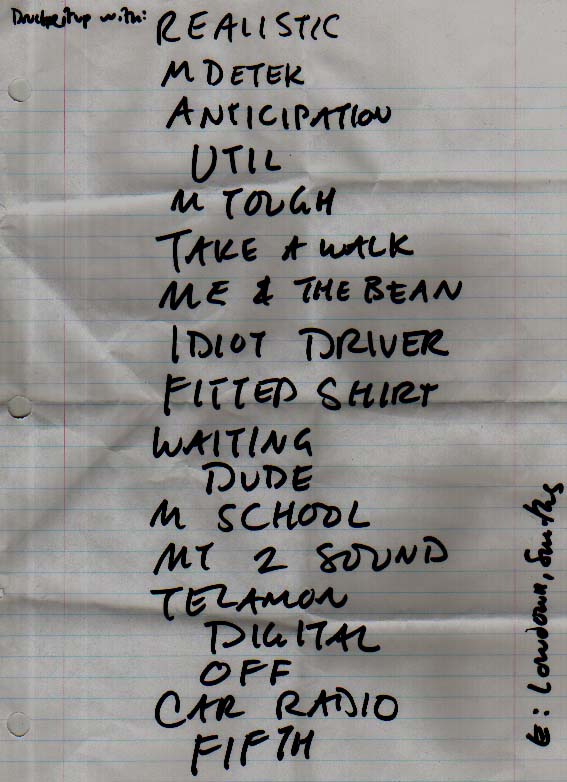 with:
REALISTIC
M DETEK
ANTICIPATION
UTIL
M TOUGH
TAKE A WALK
ME & THE BEAN
IDIOT DRIVER
FITTED SHIRT
WAITING
DUDE
M SCHOOL
MT 2 SOUND
TELAMON
DIGITAL
OFF
CAR RADIO
FIFTH
E: Lowdown, Smiths